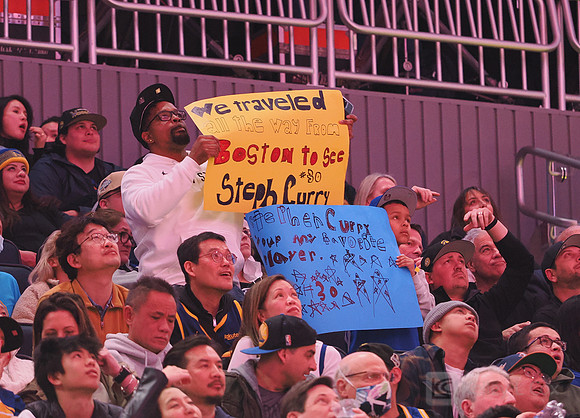 We traveled
all the way from
Boston to see
#30
Steph Curry
Stephen Curry
your my favorite
player.
#30
Rakuten